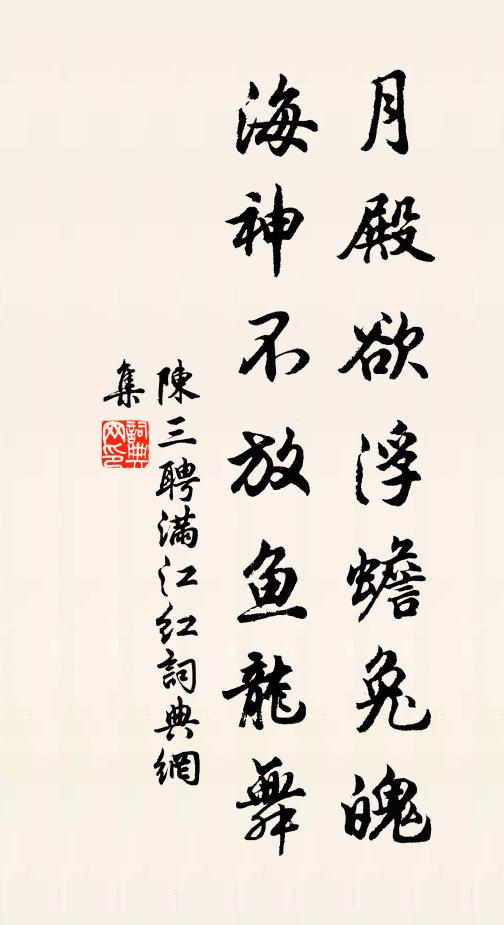 月殿欲浮蟾兔魄
海神不放鱼龍舞
陳三聘滿江红詞典網
集
詞典
网印